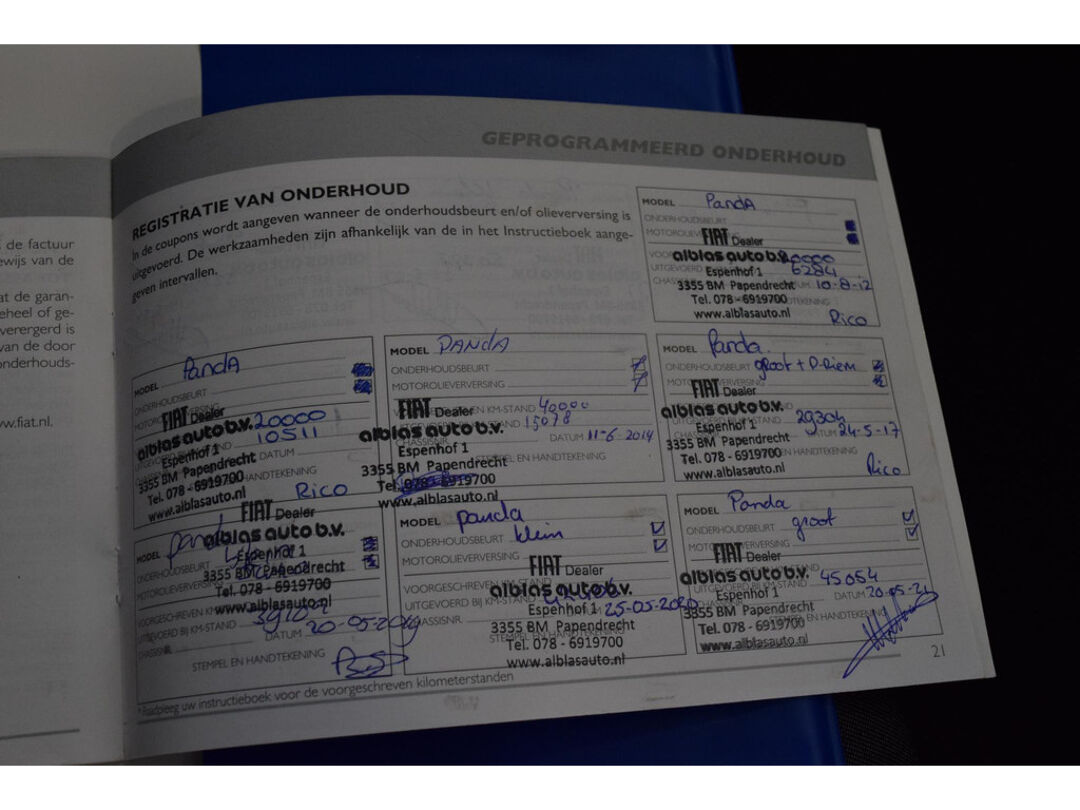 GEPROGRAMMEERD ONDERHOUD
de factuur
ewijs van de
at de garan-
eheel of ge-
verergerd is
van de door
onderhouds-
w.fiat.nl.
REGISTRATIE VAN ONDERHOUD
In de coupons wordt aangeven wanneer de onderhoudsbeurt en/of olieverversing is
uitgevoerd. De werkzaamheden zijn afhankelijk van de in het Instructieboek aange-
geven intervallen.
MODEL PandA
ONDERHOUDSBEURT
FIAT Dealer
alblas auto b.v. 20000
Espenhof 1 6284
3355 BM Papendrecht 10-8-12
Tel. 078 - 6919700
www.alblasauto.nl
Rico
MODEL PandA
ONDERHOUDSBEURT
FIAT Dealer
alblas auto b.v. 20000
10511
Espenhof 1 DATUM
3355 BM Papendrecht
Tel. 078 - 6919700
www.alblasauto.nl Rico
MODEL PANDA
ONDERHOUDSBEURT
MOTOROLIEVERVERSING
FIAT Dealer KM-STAND 40000
alblas auto b.v. STAND 15078
CHASSISNR. DATUM 11-6-2014
Espenhof 1
STEMPEL EN HANDTEKENING
3355 BM Papendrecht
Tel. 078 - 6919700
www.alblasauto.nl
MODEL Panda.
ONDERHOUDSBEURT groot + D-Riem
FIAT Dealer
alblas auto b.v. 29304
Espenhof 1 DATUM 24-5-17
3355 BM Papendrecht
Tel. 078 - 6919700
www.alblasauto.nl Rico
MODEL panda
FIAT Dealer
alblas auto b.v.
ONDERHOUDSBEURT Espenhof 1
3355 BM Papendrecht
MOTOROLIEVERVERSING
Tel. 078 - 6919700
www.alblasauto.nl
VOORGESCHREVEN KM
UITGEVOERD BIJ KM-STAND
CHASSISNR. DATUM
STEMPEL EN HANDTEKENING
MODEL panda
ONDERHOUDSBEURT klein
MOTOROLIEVERVERSING
FIAT Dealer
VOORGESCHREVEN KM-STAND
alblas auto b.v.
UITGEVOERD BIJ KM-STAND
Espenhof 1 25-05-2020
CHASSISNR.
3355 BM Papendrecht
Tel. 078 - 6919700
www.alblasauto.nl
MODEL Panda
ONDERHOUDSBEURT groot
FIAT Dealer
alblas auto b.v. 45054
Espenhof 1 DATUM 20-05-21
3355 BM Papendrecht
Tel. 078 - 6919700
www.alblasauto.nl
* Raadpleeg uw instructieboek voor de voorgeschreven kilometerstanden
21